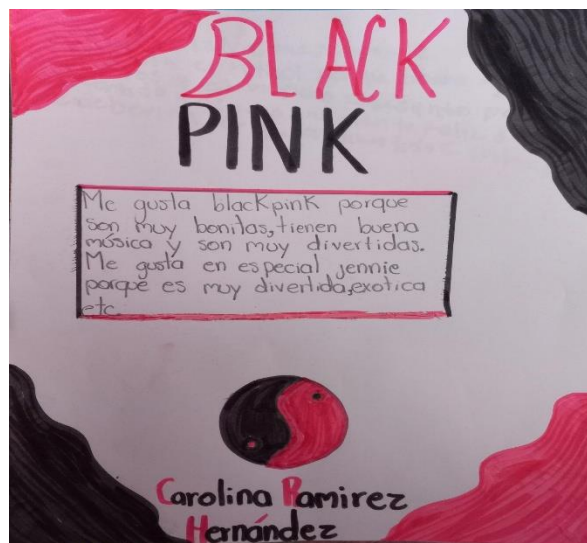 BLACK
PINK
Me gusta blackpink porque
son muy bonitas, tienen buena
música y son muy divertidas.
Me gusta en especial jennie
porque es muy divertida,exotica
etc.
Carolina Ramirez
Hernández